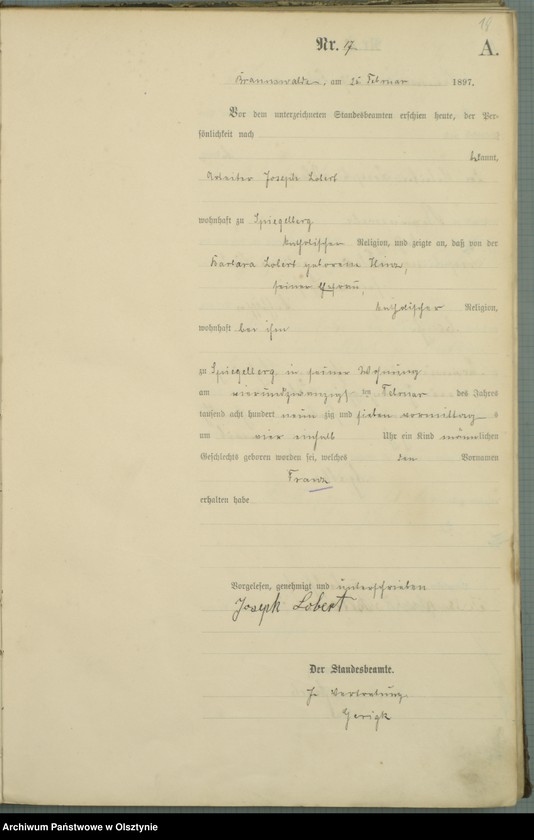 18
Nr. 17.
A.
Braunswalde, am 26 Februar 1897.
Vor dem unterzeichneten Standesbeamten erschien heute, der Per-
sönlichkeit nach
bekannt,
Arbeiter Joseph Lobert
wohnhaft zu Spiegelberg
katholischer Religion, und zeigte an, daß von der
Barbara Lobert geborene Hinz,
seiner Ehefrau,
katholischer Religion,
wohnhaft bei ihm
zu Spiegelberg in seiner Wohnung
am vierundzwanzigsten Februar des Jahres
tausend acht hundert neunzig und sieben vormittags
um vier einhalb Uhr ein Kind männlichen
Geschlechts geboren worden sei, welches den Vornamen
Franz
erhalten habe
Vorgelesen, genehmigt und unterschrieben
Joseph Lobert
Der Standesbeamte.
In Vertretung
Gerigk
Archiwum Państwowe w Olsztynie